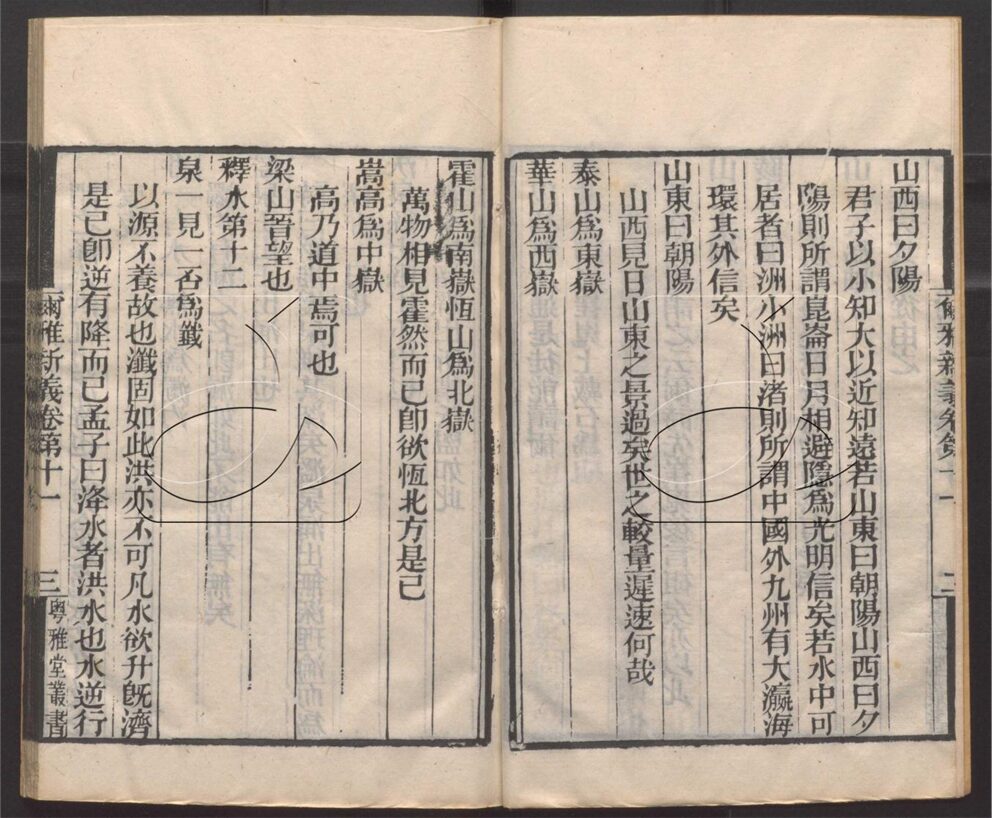 爾雅新義卷第十一
二
山西曰夕陽
君子以小知大以近知遠若山東曰朝陽山西曰夕
陽則所謂崑崙日月相避隱爲光明信矣若水中可
居者曰洲小洲曰渚則所謂中國外九州有大瀛海
環其外信矣
山東曰朝陽
山西見日山東之景過矣世之較量遲速何哉
泰山爲東嶽
華山爲西嶽
霍山爲南嶽恆山爲北嶽
萬物相見霍然而已卽欲恆北方是已
嵩高爲中嶽
高乃道中焉可也
梁山晉望也
釋水第十二
泉一見一否爲瀸
以源不養故也瀸固如此洪亦不可凡水欲升旣濟
是已卽逆有降而已孟子曰洚水者洪水也水逆行
爾雅新義卷第十一
三
粵雅堂叢書